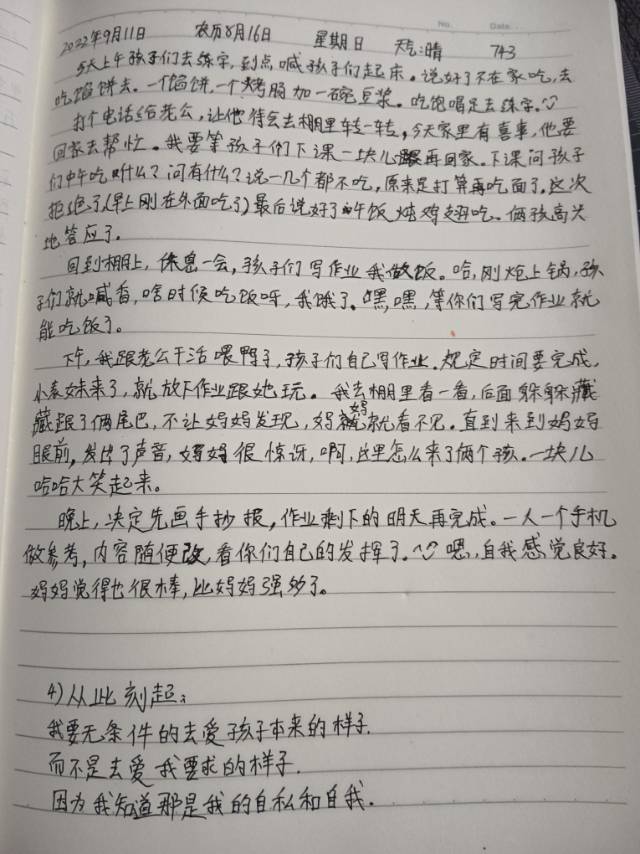 No. Date.
2022年9月11日 农历8月16日 星期日 天气:晴 743
今天上午孩子们去练字,到点喊孩子们起床。说好了不在家吃,去
吃馅饼去。一个馅饼,一个烤肠加一碗豆浆。吃饱喝足去练字。
打个电话给老公,让他待会去棚里转一转,今天家里有喜事,他要
回家去帮忙。我要等孩子们下课一块儿再回家。下课问孩子
们中午吃啥什么?问有什么?说一几个都不吃,原来是打算再吃面了。这次
拒绝了(早上刚在外面吃了)最后说好了午饭炖鸡翅吃。俩孩高兴
地答应了。
回到棚上,休息一会,孩子们写作业我做饭。哈,刚炖上锅,孩
子们就喊香,啥时候吃饭呀,我饿了。嘿,嘿,等你们写完作业就
能吃饭了。
下午,我跟老公干活喂鸭子,孩子们自己写作业。规定时间要完成,
小表妹来了,就放下作业跟她玩。我去棚里看一看,后面躲躲藏
藏跟了俩尾巴,不让妈妈发现,妈妈就看不见。直到来到妈妈
眼前,发出了声音,妈妈很惊讶,啊,这里怎么来了俩个孩。一块儿
哈哈大笑起来。
晚上,决定先画手抄报,作业剩下的明天再完成。一人一个手机
做参考,内容随便改,看你们自己的发挥了。嗯,自我感觉良好。
妈妈觉得也很棒,比妈妈强多了。
4)从此刻起:
我要无条件的去爱孩子本来的样子.
而不是去爱我要求的样子.
因为我知道那是我的自私和自我.